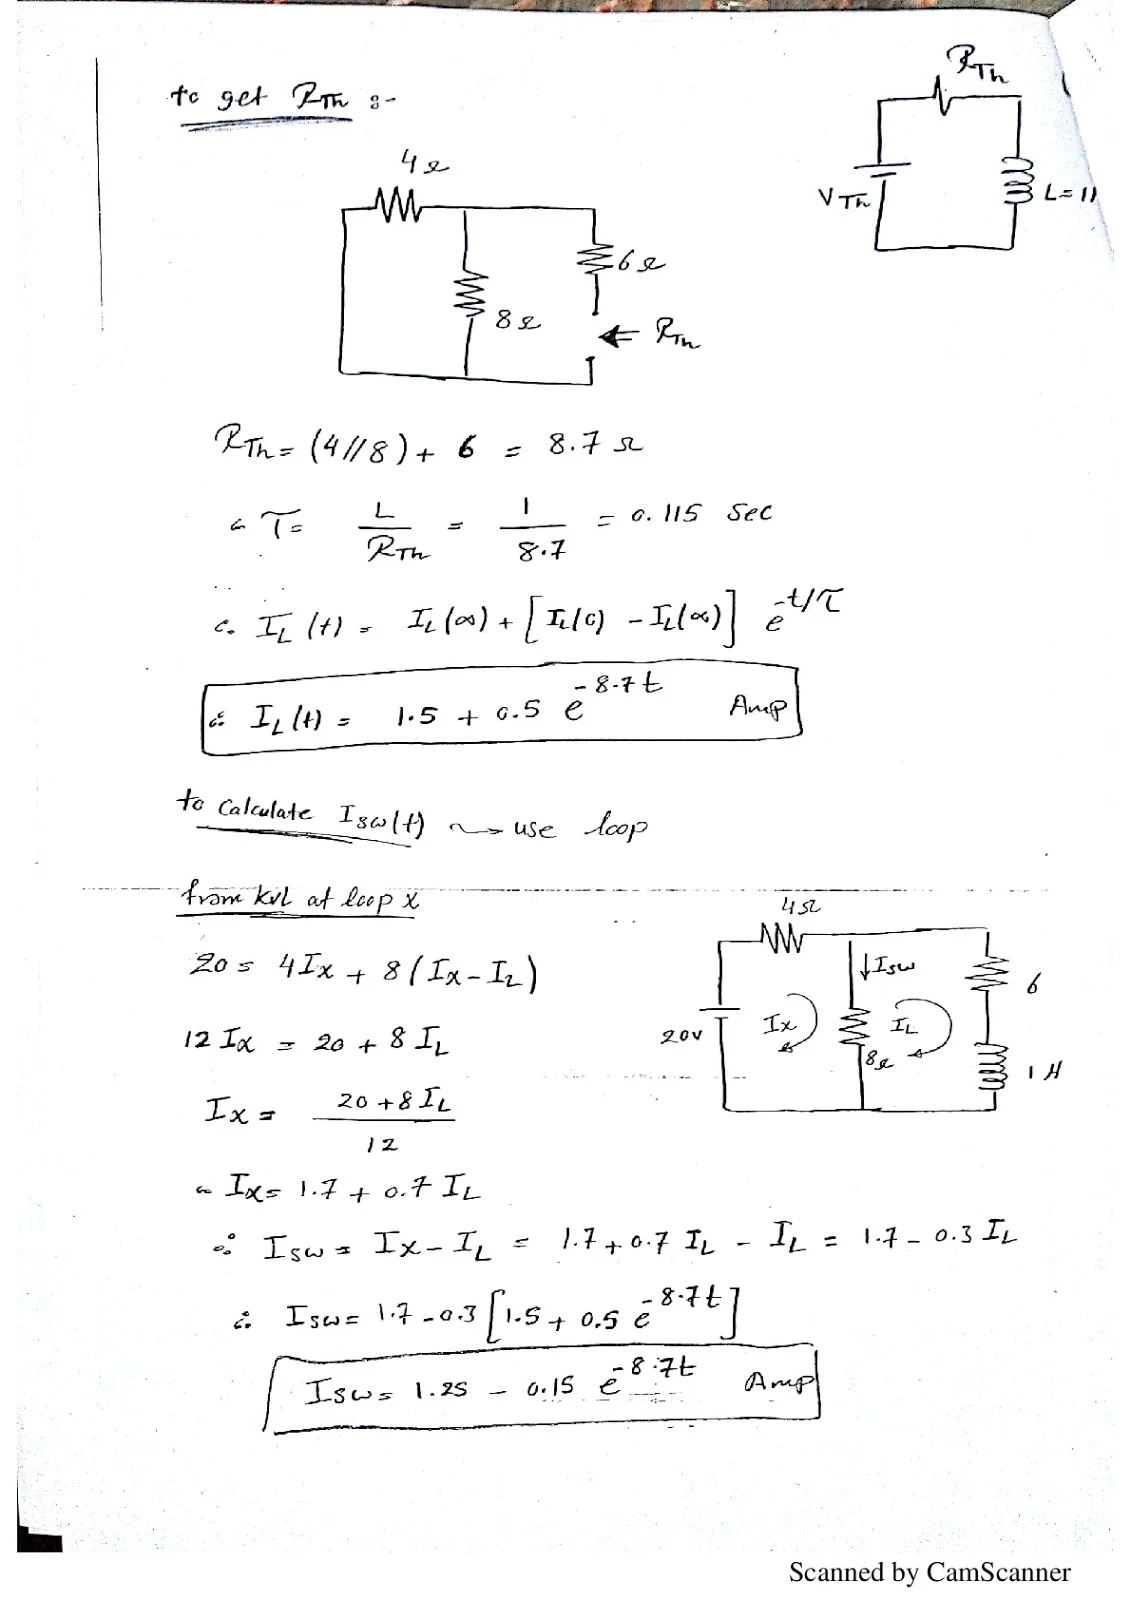 to get RTh :-
RTh
VTh
L=1
4Ω
6Ω
8Ω
⇐ RTh
RTh = (4//8) + 6 = 8.7 Ω
∴ τ = L / RTh = 1 / 8.7 = 0.115 Sec
∴ IL (t) = IL(∞) + [IL(0) - IL(∞)] e^-t/τ
∴ IL (t) = 1.5 + 0.5 e^-8.7t Amp
to Calculate Isw(t) → use loop
from kvl at loop x
4Ω
20 = 4Ix + 8(Ix - IL)
↓Isw
6
12 Ix = 20 + 8 IL
20v
Ix
IL
8Ω
1 H
Ix = 20 + 8 IL / 12
∴ Ix = 1.7 + 0.7 IL
∴ Isw = Ix - IL = 1.7 + 0.7 IL - IL = 1.7 - 0.3 IL
∴ Isw = 1.7 - 0.3 [1.5 + 0.5 e^-8.7t]
Isw = 1.25 - 0.15 e^-8.7t Amp
Scanned by CamScanner